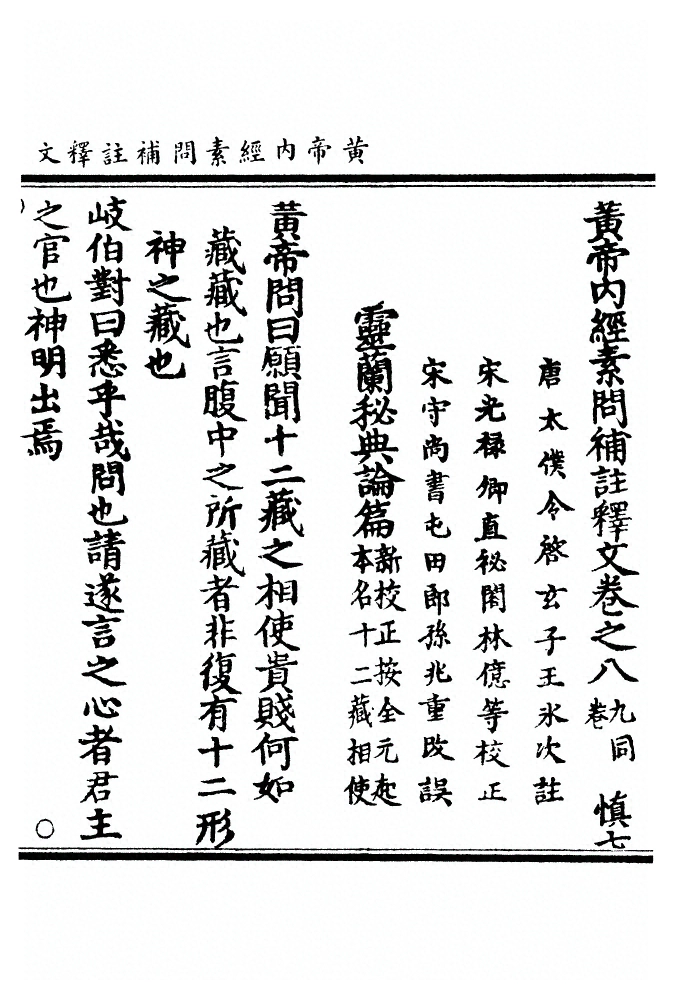 黃帝内經素問補註釋文
黃帝内經素問補註釋文卷之八 九卷同 慎七
唐太僕令啓玄子王氷次註
宋光禄卿直秘閣林億等校正
宋守尚書屯田郎孫兆重改誤
靈蘭秘典論篇 新校正按全元起本名十二藏相使
黃帝問曰願聞十二藏之相使貴賤何如
藏藏也言腹中之所藏者非復有十二形
神之藏也
岐伯對曰悉乎哉問也請遂言之心者君主
之官也神明出焉
○